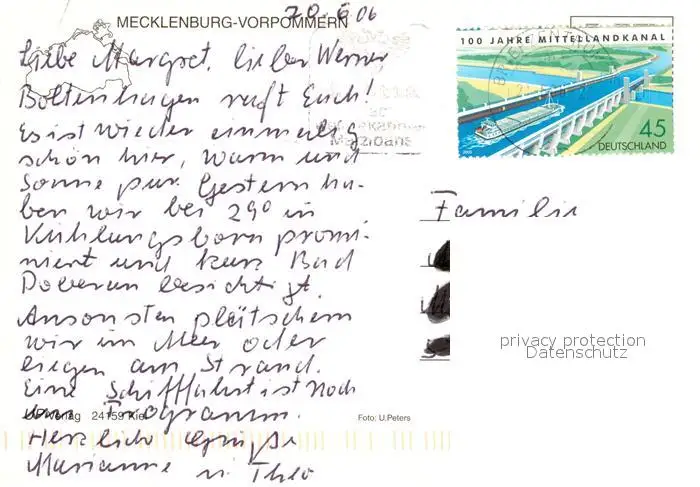 20.6.06
MECKLENBURG-VORPOMMERN
Liebe Margret, lieber Werner
Boltenhagen ruft Euch!
Es ist wieder einmalig
schön hier, warm und
Sonne pur. Gestern ha-
ben wir bei 29° in
Kühlungsborn promi-
niert und kurz Bad
Doberan besichtigt.
Ansonsten plätschern
wir im Meer oder
liegen am Strand.
Eine Schifffahrt ist noch
im Programm.
Herzliche Grüße
Marianne u. Theo
Verlag 24159 Kiel
Foto: U.Peters
100 JAHRE MITTELLANDKANAL
45
DEUTSCHLAND
BRIEFZENTRUM
Familie
privacy protection
Datenschutz